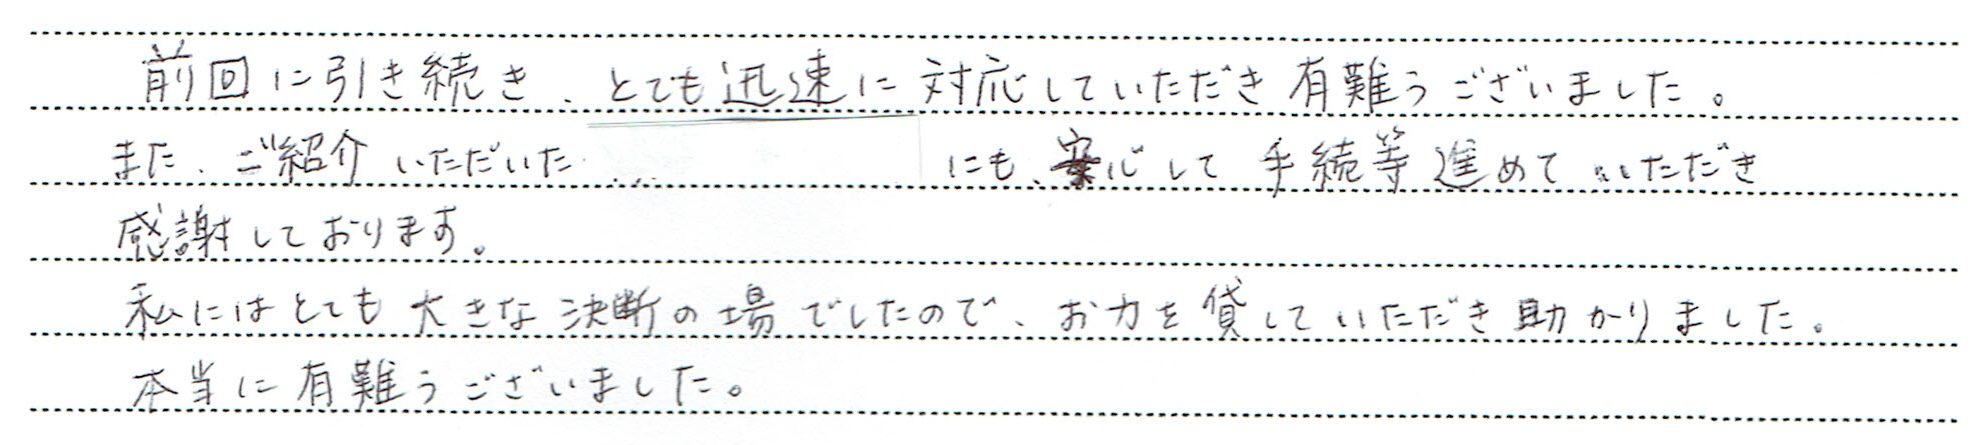 前回に引き続き、とても迅速に対応していただき有難うございました。
また、ご紹介いただいた にも、安心して手続等進めていただき
感謝しております。
私にはとても大きな決断の場でしたので、お力を貸していただき助かりました。
本当に有難うございました。